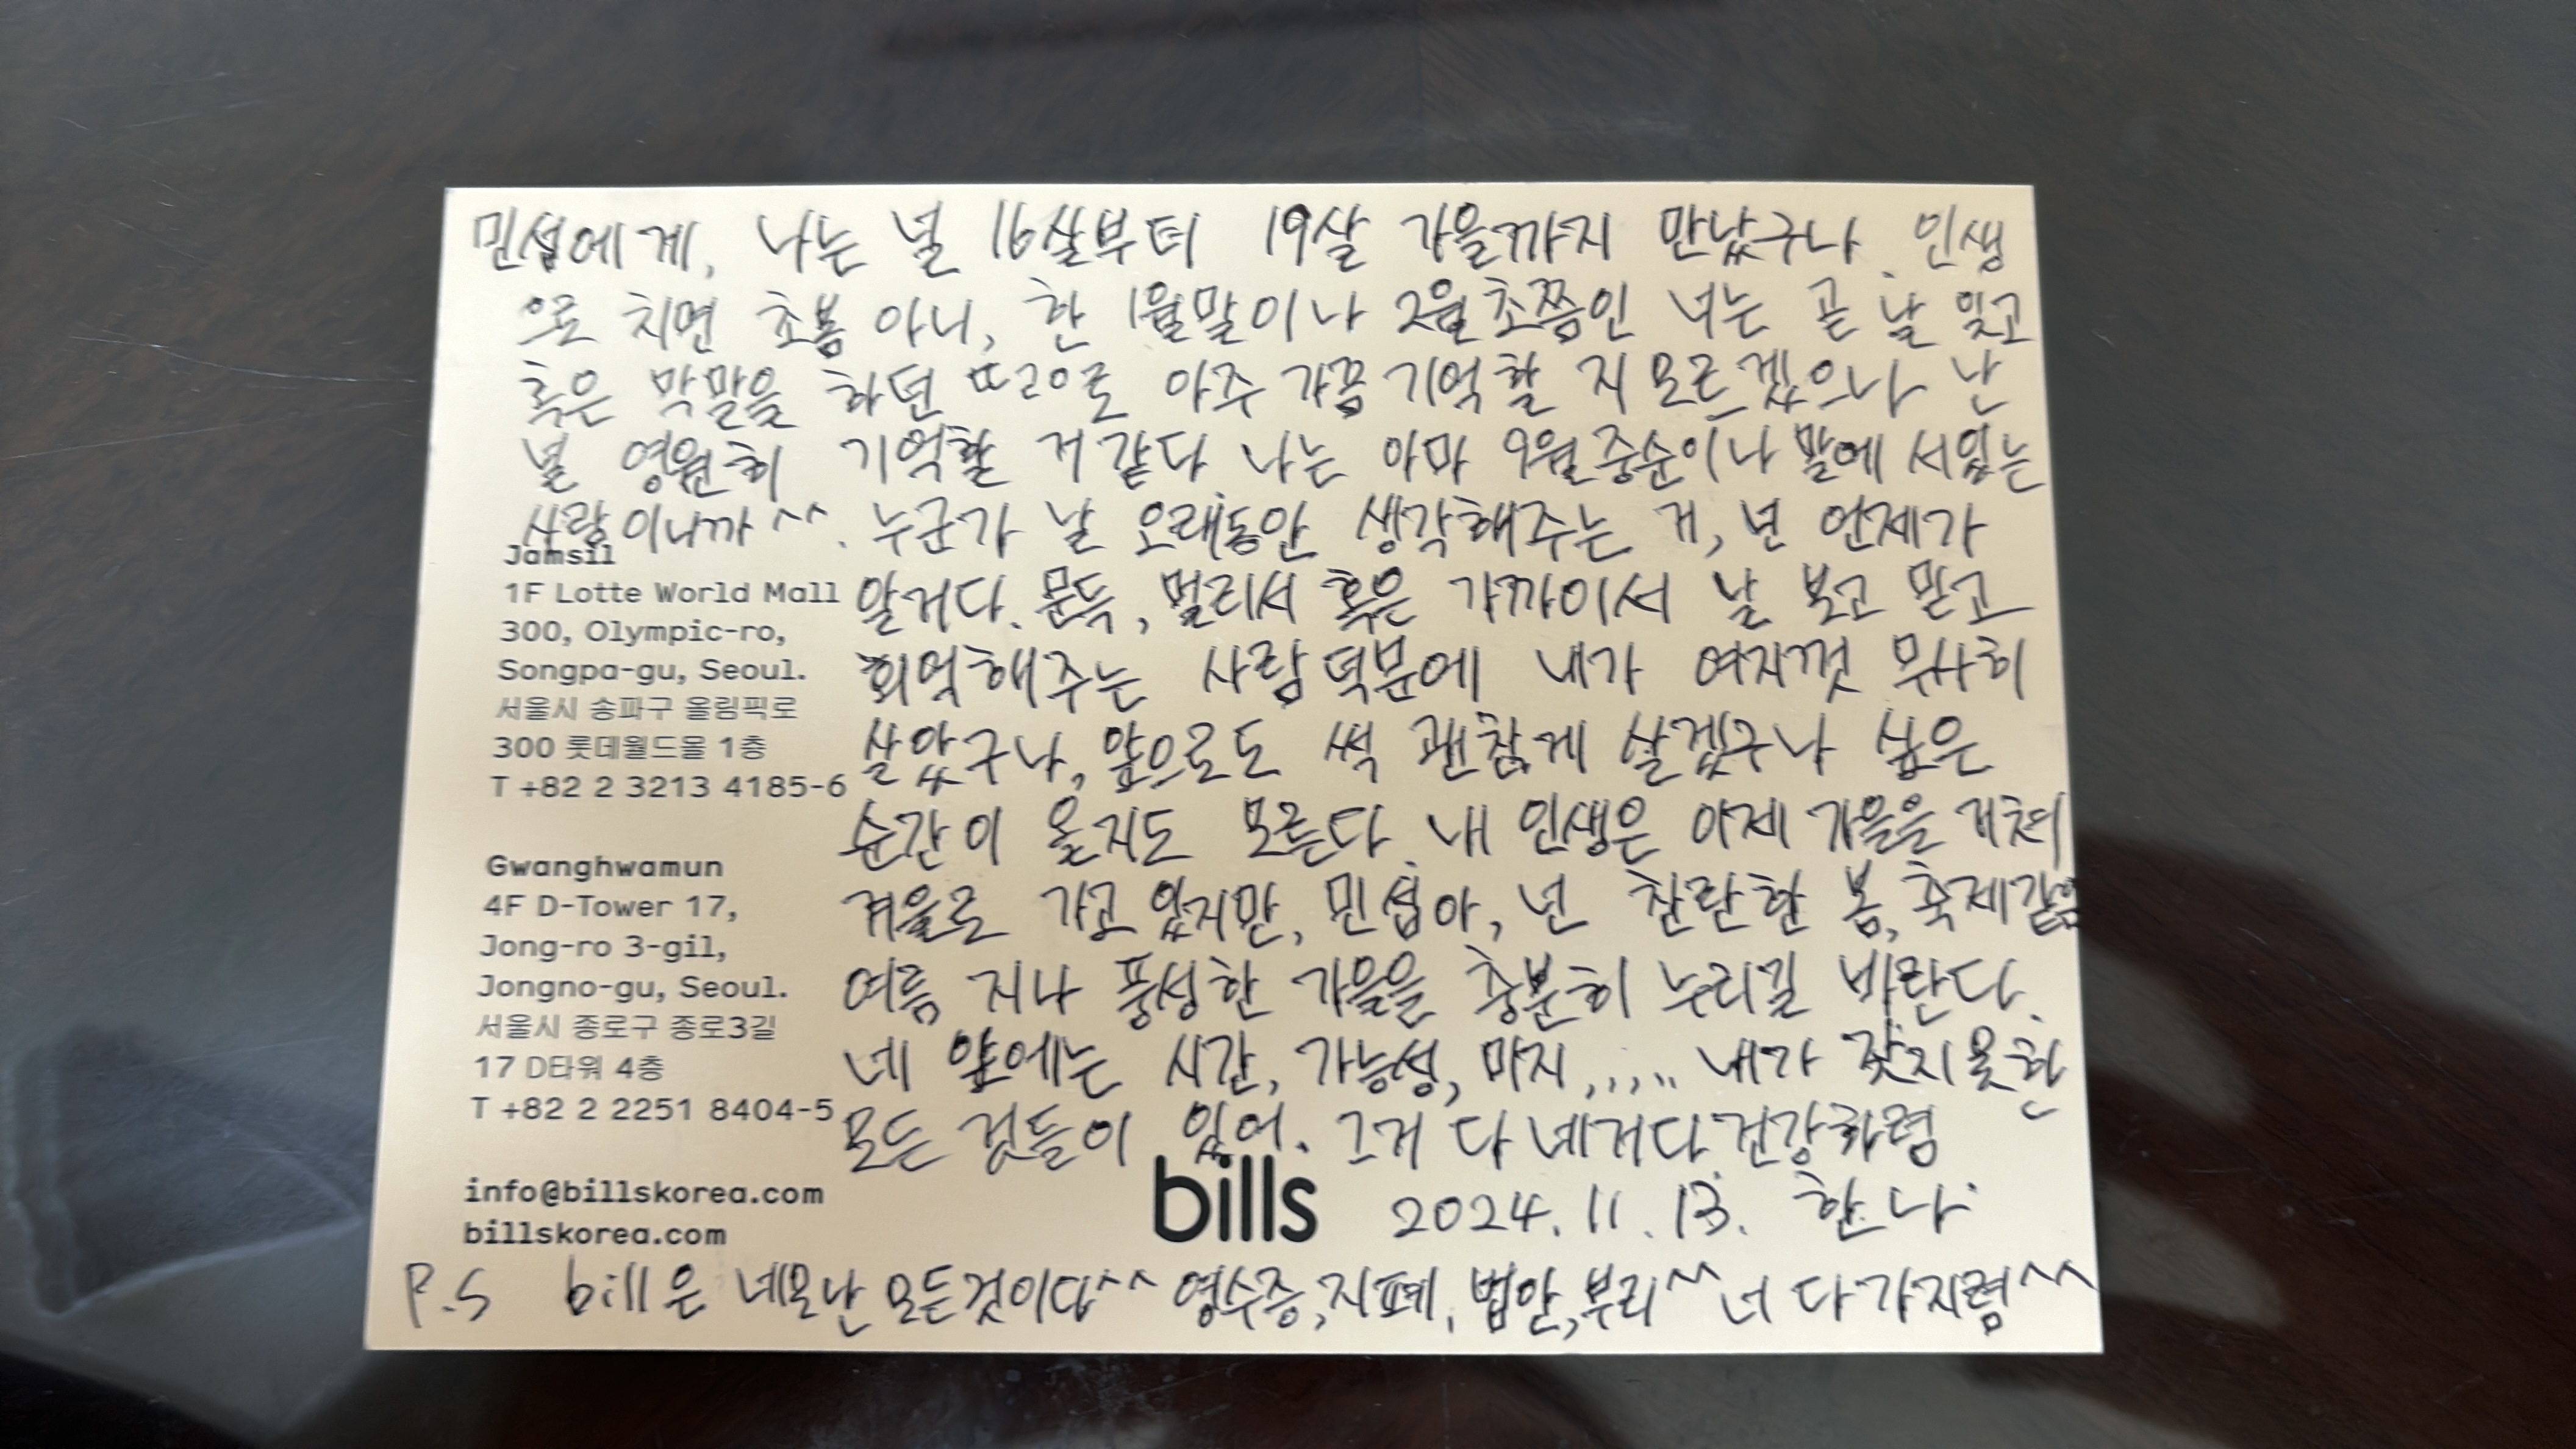 민섭에게, 나는 널 16살부터 19살 가을까지 만났구나. 인생
으로 치면 초봄 아니, 한 1월말이나 2월초쯤인 너는 곧 날 잊고
혹은 막말을 하던 또라이로 아주 가끔 기억할 지 모르겠으나 난
널 영원히 기억할 거 같다 나는 아마 9월 중순이나 말에 서있는
사람이니까^^. 누군가 날 오래동안 생각해주는 거, 넌 언제가
알거다. 문득, 멀리서 혹은 가까이서 날 보고 믿고
회억해주는 사람 덕분에 내가 여지껏 무사히
살았구나, 앞으로도 썩 괜찮게 살겠구나 싶은
순간이 올지도 모른다. 내 인생은 이제 가을을 거쳐
겨울로 가고 있지만, 민섭아, 넌 찬란한 봄, 축제같은
여름 지나 풍성한 가을을 충분히 누리길 바란다.
네 앞에는 시간, 가능성, 미지,,,,.. 내가 갖지못한
모든 것들이 있어. 그거 다 네거다. 건강하렴
2024. 11. 13. 한나.
P.S bill은 네모난 모든것이다^^ 영수증, 지폐, 법안, 부리^^ 너 다 가지렴^^
Jamsil
1F Lotte World Mall
300, Olympic-ro,
Songpa-gu, Seoul.
서울시 송파구 올림픽로
300 롯데월드몰 1층
T +82 2 3213 4185-6
Gwanghwamun
4F D-Tower 17,
Jong-ro 3-gil,
Jongno-gu, Seoul.
서울시 종로구 종로3길
17 D타워 4층
T +82 2 2251 8404-5
info@billskorea.com
billskorea.com
bills